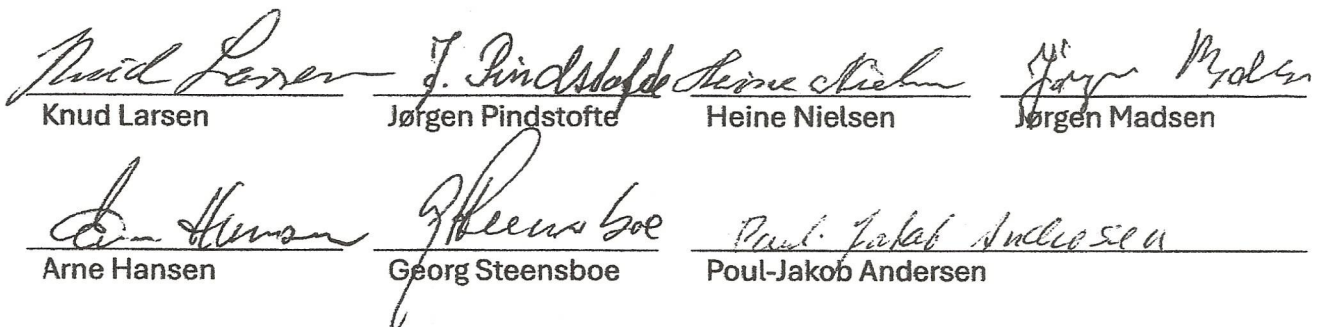 Knud Larsen J. Pindstofte Heine Nielsen Jørgen Madsen
Knud Larsen Jørgen Pindstofte Heine Nielsen Jørgen Madsen
Arne Hansen G Steensboe Poul-Jakob Andersen
Arne Hansen Georg Steensboe Poul-Jakob Andersen